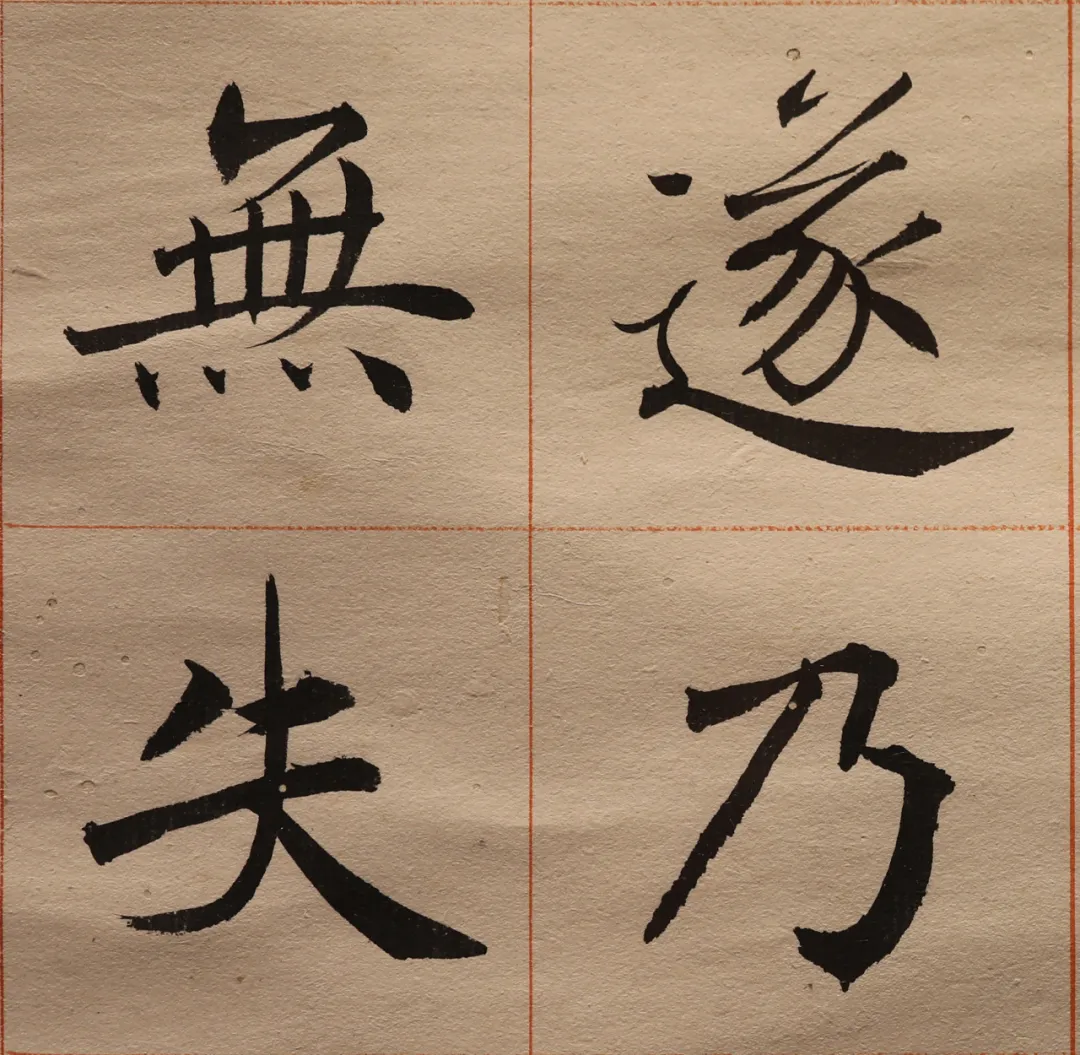 遂乃
無失